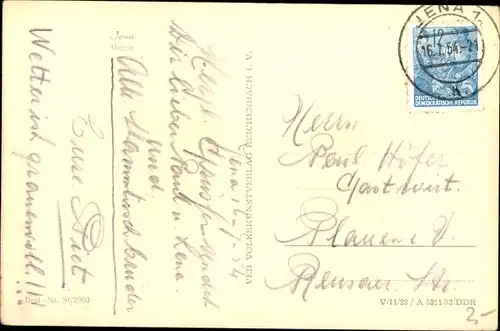 Jena
Jena 16.7.54
Herzl. Grüsse sendet
Dir lieber Paul u. Lena.
und
Alle Stammtischbrüder
Eure
Wetter ist grauenvoll!!!
Best.-Nr. St/2960
VEB VOLKSKUNSTVERLAG REICHENBACH I. V.
JENA 1
16.7.54.-21
DEUTSCHE
DEMOKRATISCHE REPUBLIK
Herrn
Paul Höfer
Gastwirt.
Plauen i. V.
Str.
V/11/23 / A 5211/53/DDR
2,-